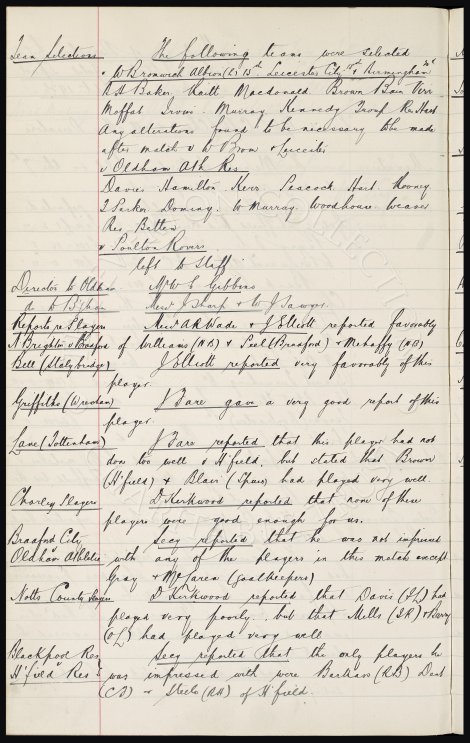 Team Selections The following teams were selected
v W Bromwich Albion (L) 13th. Leicester City 18th & Birmingham 20th
N S Baker Raitt Macdonald Brown Bain Virr
Moffat Irvine. Murray Kennedy Troup Res Hart
Any alterations found to be necessary to be made
after match v W Brom & Leicester
v Oldham Ath Res
Davies Hamilton Kerr Peacock Hart Rooney
Parker Doming. W Murray Woodhouse Weaver
Res Batten
v Poulton Rovers
left to Staff.
Director to Oldham Mr W C Gibbins
do W B'ham Messrs J Sharp & W J Sawyer.
Reports re Players Messrs A R Wade & J Elliott reported favorably
N Brighton v Bradford of Williams (NB) & Peel (Bradford) & Mehaffy (NB)
Bell (Stalybridge) J Elliott reported very favorably of this
player.
Griffiths (Wrexham) J Bare gave a very good report of this
player.
Lane (Tottenham) J Bare reported that this player had not
done too well v H'field, but stated that Brown
(H'field) & Blair (Spurs) had played very well.
Chorley Players D Kirkwood reported that none of these
players were good enough for us.
Bradford City Secy reported that he was not impressed
v Oldham Athletic with any of the players in this match except
Gray & McLaren (Goalkeepers)
Notts County Players D Kirkwood reported that Davis (IL) had
played very poorly. but that Mills (IR) & Barry
(OL) had played very well
Blackpool Res Secy reported that the only players he
v H'field Res was impressed with were Barkas (RB) Dent
(CF) & Steele (RH) of H'field.